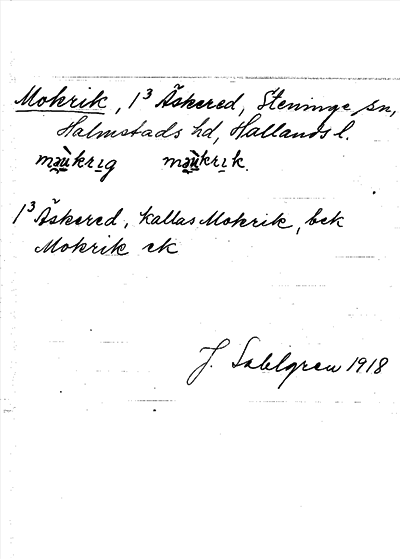 Mokrik, 1³ Äskered, Steninge sn,
Halmstads hd, Hallands l.
mạùkrịg mạùkrịk.
1³ Äskered, kallas Mokrik, bek
Mokrik ek
J. Sahlgren 1918